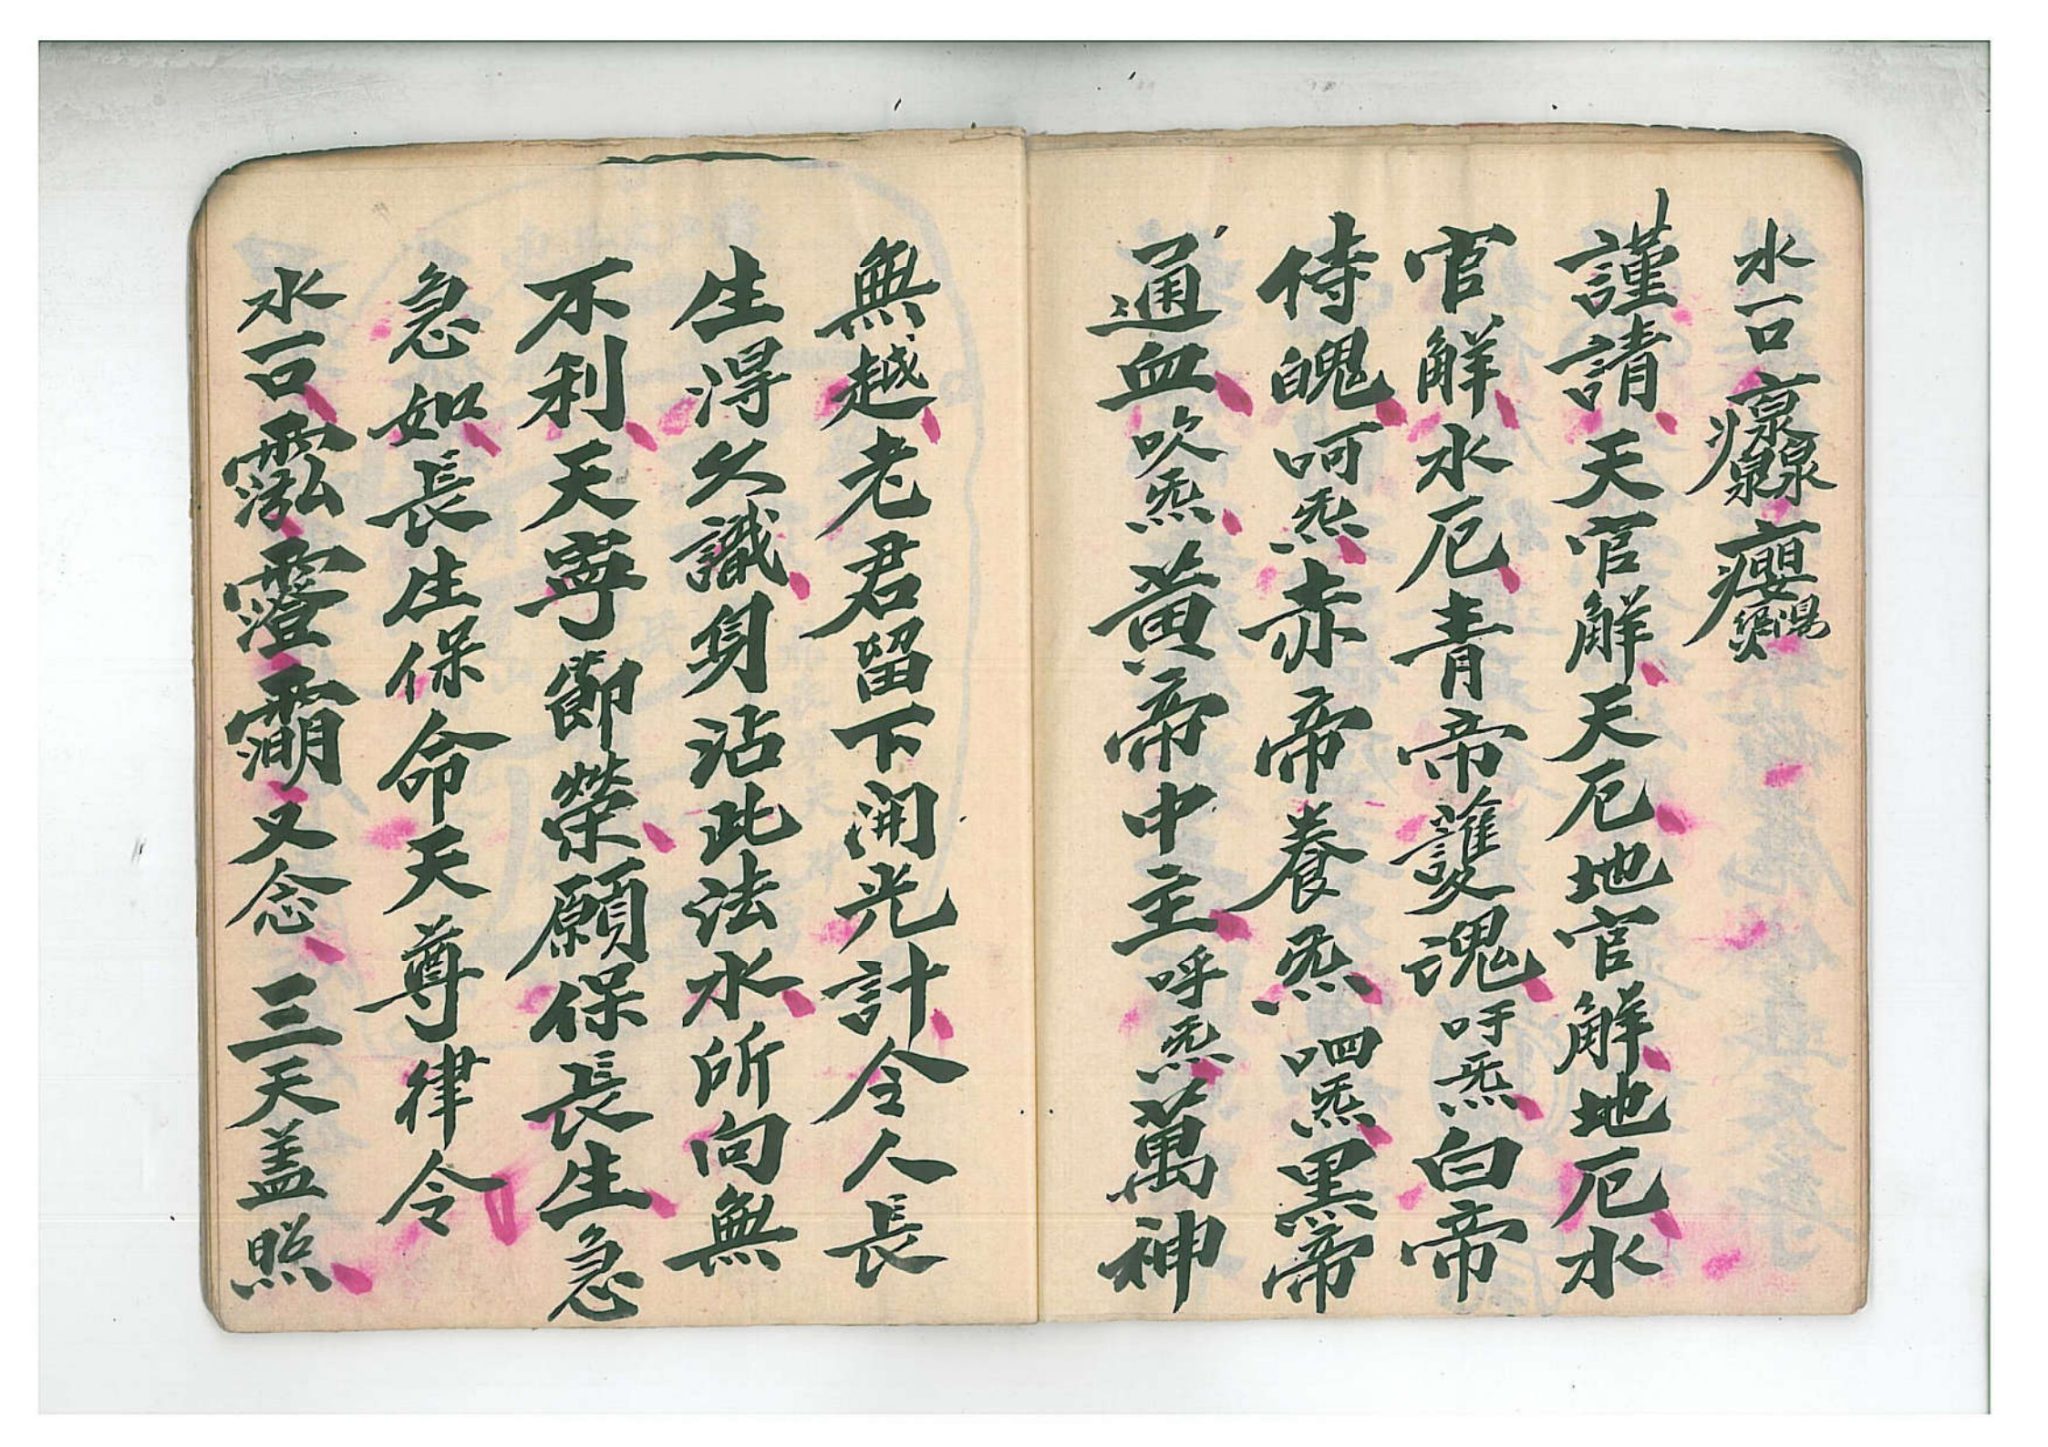 水一口
謹請天官解天厄地官解地厄水
官解水厄青帝護魂吁炁白帝
侍魄呵炁赤帝養炁呬炁黑帝
通血吹炁黃帝中主呼炁萬神
無越老君留下開光計令人長
生得久識身沾此法水所向無
不利天寕節榮願保長生急
急如長生保命天尊律令
水一口又念三天盖照